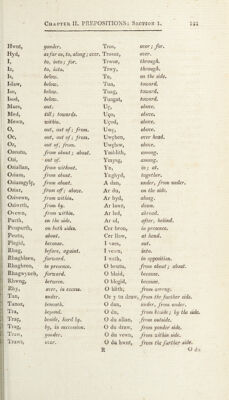 CHAPTER II. PREPOSITIONS; SECTION I. 121
Hwnt, yonder.
Hyd, as far as, to, along; over.
I, to, into; for.
Iz, to, into.
Is, below.
Islaw, below.
Iso, below.
Isod, below.
Maes, out.
Med, till; towards.
Mewn, within.
O, out, out of; from.
Oc, out, out of; from.
Oz, out of, from.
Ozeutu, from about; about.
Oni, out of.
Oeallan, from without.
Oeiam, from about.
Oeiamgylç, from about.
Oeiar, from off; above.
Oeivewn, from within.
Oeiwrth, from by.
Ovewn, from within.
Parth, on the side.
Penparth, on both sides.
Peutu, about.
Plegid, because.
Rhag, before, against.
Rhagblaen, forward.
Rhagbron, in presence.
Rhagwyneb, forward.
Rhwng, between.
Rhy, over, in excess.
Tan, under.
Tanoz, beneath.
Tra, beyond.
Traç, beside, hard by.
Trag, by, in succession.
Traw, yonder.
Traws, over.
Tros, over; for.
Trosoz, over.
Trwoz, through.
Trwy, through.
Tu, on the side.
Tua, toward.
Tuag, toward.
Tuagat, toward.
Uç, above.
Uço, above.
Uçod, above.
Uwç, above.
Uwçben, over head.
Uwçlaw, above.
Ymblith, among.
Ymysg, among.
Yn, in; at.
Ynghyd, together.
A dan, under, from under.
Ar du, on the side.
Ar hyd, along.
Ar lawr, down.
Ar led, abroad.
Ar ol, after, behind.
Cer bron, in presence.
Cer llaw, at hand.
I vaes, out.
I vewn, into.
I wrth, in opposition.
O beutu, from about; about.
O blaid, because.
O blegid, because.
O blith, from among.
Or y tu draw, from the further side.
O dan, under, from under.
O du, from beside; by the side.
O du allan, from outside.
O du draw, from yonder side.
O du vewn, from within side.
O du hwnt, from the further side.
R O du